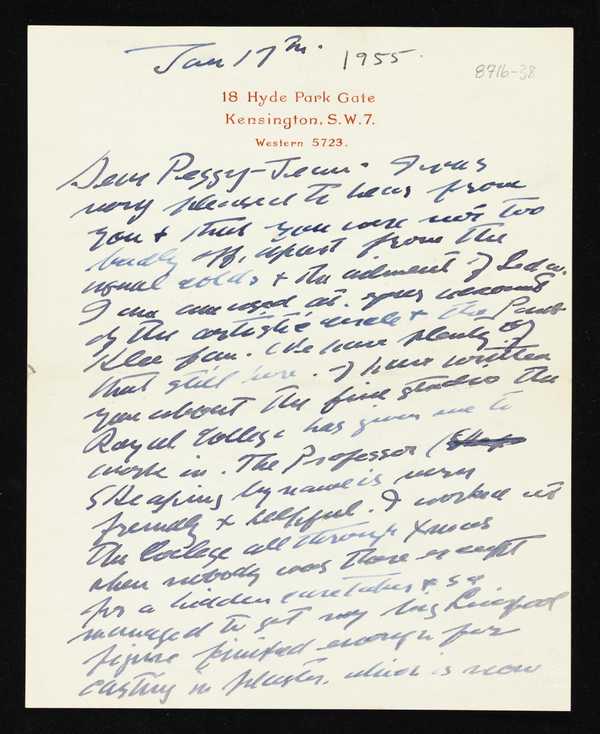 Jan 17th. 1955.
8716-38
18 Hyde Park Gate
Kensington, S.W.7.
Western 5723.
Dear Peggy-Jean. I was
very pleased to hear from
you & that you were not too
badly off, apart from the
usual colds & the ailment of
I am amused at your account
of the artistic circle & the Paul
Klee fan. We have plenty of
that still here. I have written
you about the fine studio the
Royal College has given me to
work in. The Professor (
Skeaping by name is very
friendly & helpful. I worked at
the College all through Xmas
when nobody was there except
for a hidden caretaker & so
managed to get my big Liverpool
figure finished enough for
casting in plaster, which is now